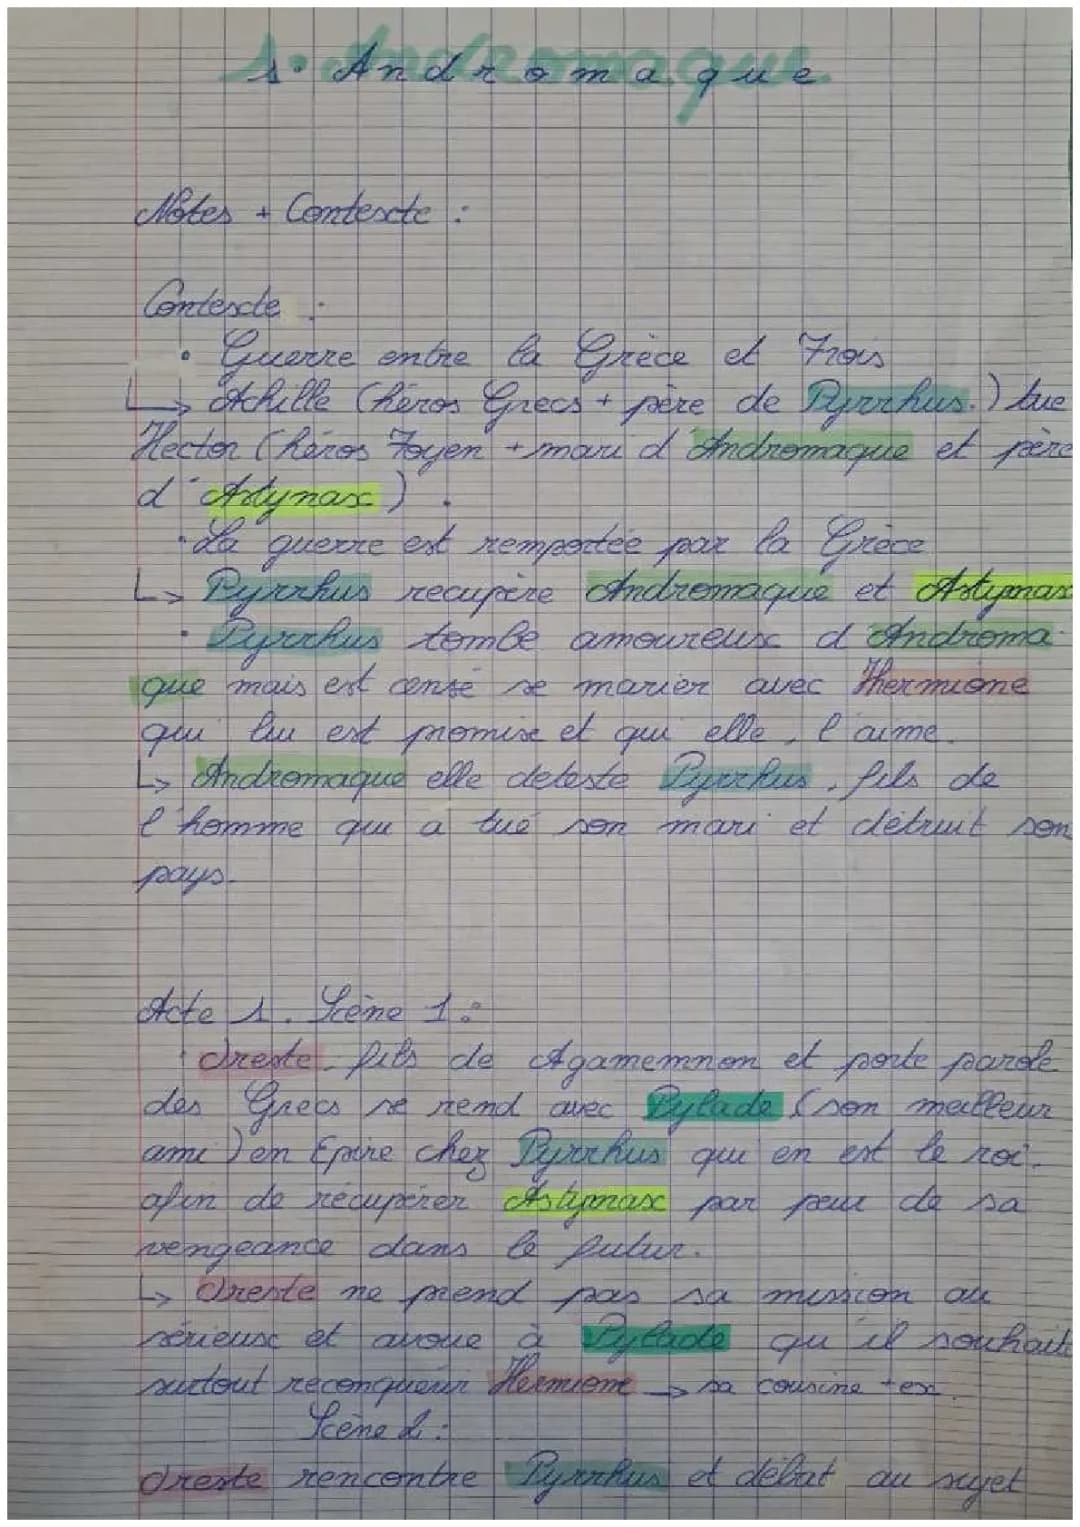 1. Andromaque
Notes + Contexte :
Contexte :
• Guerre entre la Grèce et Trois
↳ Achille (héros Grecs + père de Pyrrhus.) tue
Hector (héros Toyen + mari d'Andromaque et père
d'Astynax).
• La guerre est remportée par la Grèce
↳ Pyrrhus recupère Andromaque et Astynax
• Pyrrhus tombe amoureux d'Androma-
que mais est censé se marier avec Hermione
qui lui est promise et qui elle, l'aime.
↳ Andromaque elle deteste Pyrrhus, fils de
l'homme qui a tué son mari et détruit son
pays.
Acte 1. Scène 1 :
• Oreste, fils de Agamemnon et porte parole
des Grecs se rend avec Pylade (son meilleur
ami) en Epire chez Pyrrhus qui en est le roi.
afin de récupérer Astynax par peur de sa
vengeance dans le futur.
↳ Oreste ne prend pas sa mission au
sérieux et avoue à Pylade qu'il souhaite
surtout reconquérir Hermione → sa cousine + ex
Scène 2 :
Oreste rencontre Pyrrhus et débat au sujet